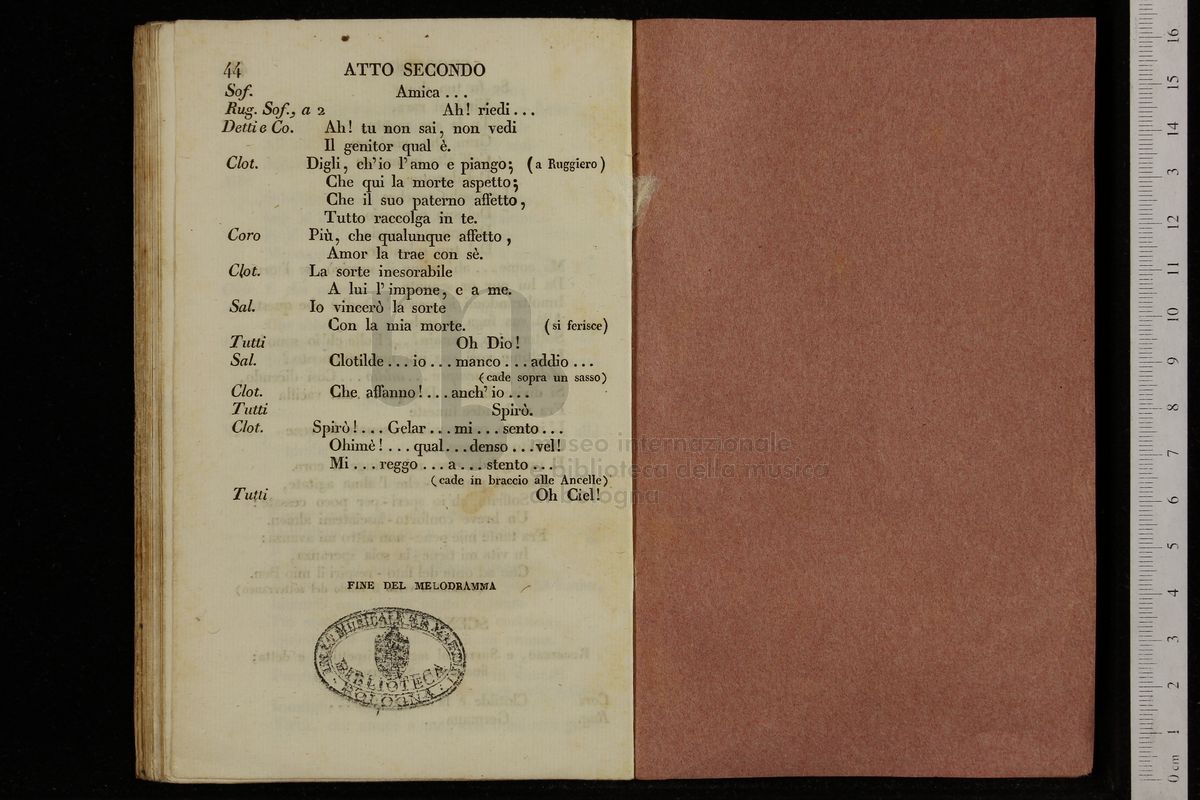 44 ATTO SECONDO
Sof. Amica . . .
Rug. Sof., a 2 Ah! riedi . . .
Detti e Co. Ah! tu non sai, non vedi
Il genitor qual è.
Clot. Digli, ch'io l'amo e piango; (a Ruggiero)
Che qui la morte aspetto;
Che il suo paterno affetto,
Tutto raccolga in te.
Coro Più, che qualunque affetto,
Amor la trae con sè.
Clot. La sorte inesorabile
A lui l'impone, e a me.
Sal. Io vincerò la sorte
Con la mia morte. (si ferisce)
Tutti Oh Dio!
Sal. Clotilde . . . io . . . manco . . . addio . . .
(cade sopra un sasso)
Clot. Che affanno! . . . anch'io . . .
Tutti Spirò.
Clot. Spirò! . . . Gelar . . . mi . . . sento . . .
Ohimè! . . . qual . . . denso . . . vel!
Mi . . . reggo . . . a . . . stento . . .
(cade in braccio alle Ancelle)
Tutti Oh Ciel!
FINE DEL MELODRAMMA
BIBLIOTECA
BOLOGNA
museo internazionale
e biblioteca della musica
di bologna
16
15
14
13
12
11
10
9
8
7
6
5
4
3
2
1
0 cm